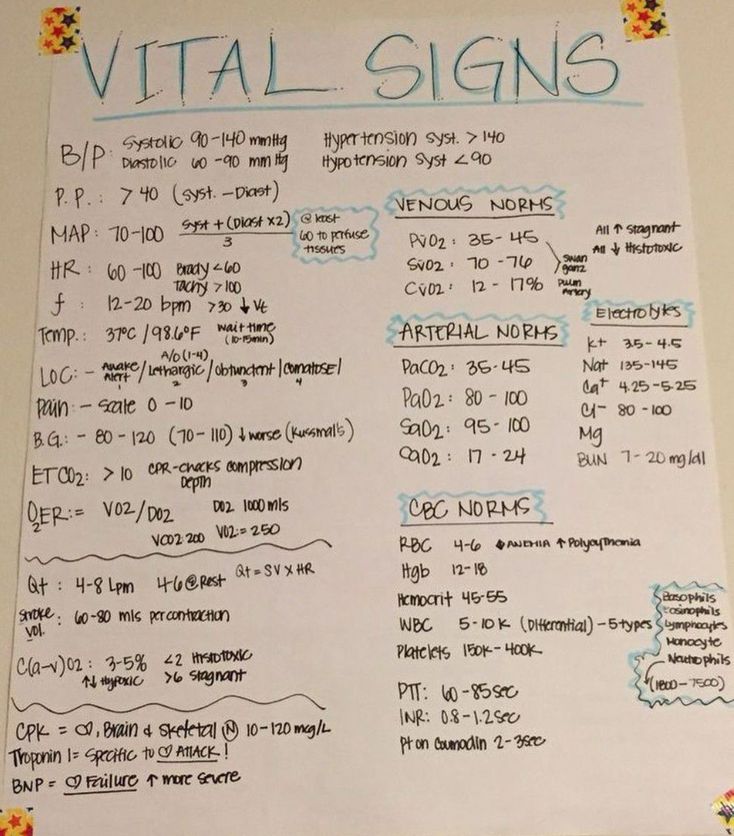 VITAL SIGNS
B/P: Systolic 90-140 mmHg
Diastolic 60-90 mm Hg
Hypertension Syst. > 140
Hypotension Syst < 90
P.P.: > 40 (Syst. - Diast)
MAP: 70-100 Syst + (Diast x2)
3
@ least
60 to perfuse
tissues
HR: 60-100 Brady < 60
Tachy > 100
f: 12-20 bpm > 30 ↓ Vt
Temp.: 37°C / 98.6°F wait time
(10-15min)
A/O (1-4)
LOC: - Awake / Lethargic / obtundent / comatose /
Alert
1 2 3 4
Pain: - Scale 0-10
B.G.: - 80-120 (70-110) ↓ worse (Kussmal's)
ETCO2: > 10 CPR-checks compression
Depth
O2ER:= VO2/DO2 DO2 1000 mls
VCO2: 200 VO2:= 250
Qt: 4-8 Lpm 4-6 @ Rest Qt = SV X HR
Stroke
Vol.: 60-80 mls per contraction
C(a-v)O2: 3-5% < 2 Histotoxic
↑↓ Hypoxic > 6 Stagnant
CPK = ♡, Brain & Skeletal Ⓝ 10-120 mcg/L
Troponin I = Specific to ♡ ATTACK!
BNP = ♡ Failure ↑ more severe
VENOUS NORMS
PvO2: 35-45
SvO2: 70-76
CvO2: 12-17%
Swan
ganz
Pulm
Artery
All ↑ Stagnant
All ↓ Histotoxic
ARTERIAL NORMS
PaCO2: 35-45
PaO2: 80-100
SaO2: 95-100
CaO2: 17-24
Electrolytes
K+ 3.5-4.5
Na+ 135-145
Ca+ 4.25-5.25
Cl- 80-100
Mg
BUN 7-20 mg/dl
CBC NORMS
RBC 4-6 ↓ ANEMIA ↑ Polycythemia
Hgb 12-18
Hemocrit 45-55
WBC 5-10K (Differential) - 5 types
Platelets 150K-400K
Basophils
Eosinophils
Lymphocytes
Monocyte
Neutrophils
(1800-7500)
PTT: 60-85 sec
INR: 0.8-1.2 sec
Pt on Coumadin 2-3 sec